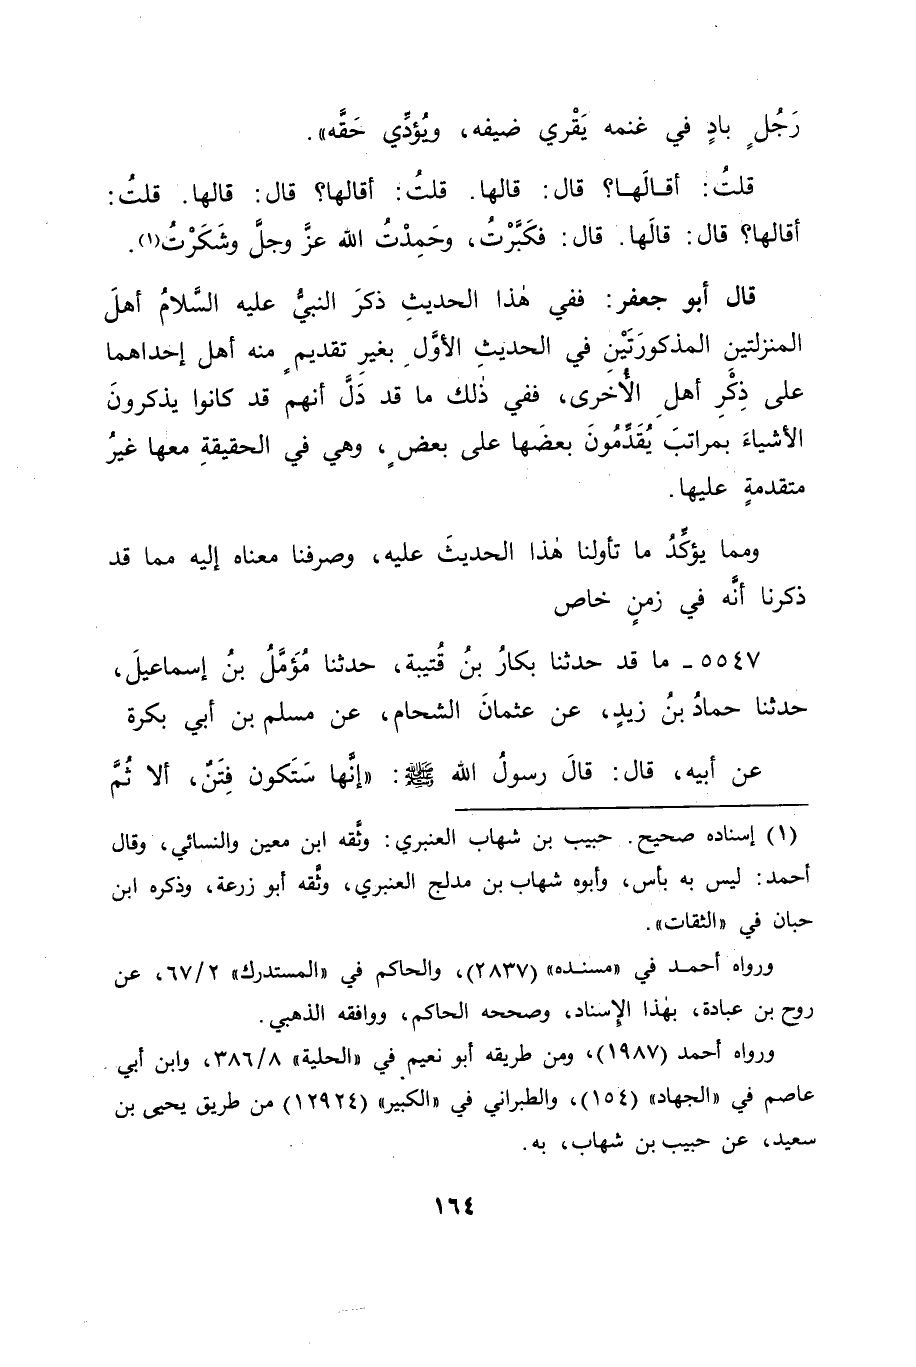 رَجُلٍ بادٍ في غنمه يَقْري ضيفه، ويُؤدِّي حَقَّه».
قلتُ: أقـالَهـا؟ قال: قالها. قلتُ: أقالها؟ قال: قالها. قلتُ:
أقالها؟ قال: قالَها. قال: فكَبَّرْتُ، وحَمِدْتُ الله عزَّ وجلَّ وشَكَرْتُ(١).
قال أبو جعفر: ففي هٰذا الحديثِ ذكرَ النبيُّ عليه السَّلامُ أهلَ
المنزلتين المذكورَتَيْنِ في الحديثِ الأوَّلِ بغيرِ تقديمٍ منه أهل إحداهما
على ذِكْرِ أهلِ الأُخرى، ففي ذٰلك ما قد دَلَّ أنهم قد كانوا يذكرونَ
الأشياءَ بمراتبَ يُقَدِّمُونَ بعضَها على بعضٍ، وهي في الحقيقةِ معها غيرُ
متقدمةٍ عليها.
ومما يؤكِّدُ ما تأولنا هٰذا الحديثَ عليه، وصرفنا معناه إليه مما قد
ذكرنا أنَّه في زمنٍ خاص
٥٥٤٧ ـ ما قد حدثنا بكارُ بنُ قُتيبة، حدثنا مُؤَمَّلُ بنُ إسماعيلَ،
حدثنا حمادُ بنُ زيدٍ، عن عثمانَ الشحام، عن مسلم بن أبي بكرة
عن أبيه، قال: قالَ رسولُ الله ﷺ: «إنَّها سَتَكون فِتَنٌ، ألا ثُمَّ
(١) إسناده صحيح. حبيب بن شهاب العنبري: وثَّقه ابن معين والنسائي، وقال
أحمد: ليس به بأس، وأبوه شهاب بن مدلج العنبري، وثَّقه أبو زرعة، وذكره ابن
حبان في «الثقات».
ورواه أحمـد في «مسنـده» (٢٨٣٧)، والحاكم في «المستدرك» ٦٧/٢، عن
روح بن عبادة، بهٰذا الإسناد، وصححه الحاكم، ووافقه الذهبي.
ورواه أحمد (١٩٨٧)، ومن طريقه أبو نعيم في «الحلية» ٣٨٦/٨، وابن أبي
عاصم في «الجهاد» (١٥٤)، والطبراني في «الكبير» (١٢٩٢٤) من طريق يحيى بن
سعيد، عن حبيب بن شهاب، به.
١٦٤